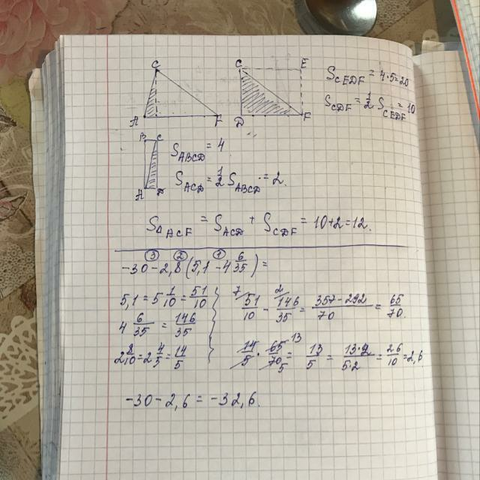 C
A
F
C
E
D
F
S_CEDF = 4·5=20
S_CDF = 1/2 S_CEDF = 10
B C
A D
S_ABCD = 4
S_ACD = 1/2 S_ABCD = 2.
S_△ACF = S_ACD + S_CDF = 10+2=12.
③ ② ①
-30-2,8(5,1-4 6/35)=
5,1=5 1/10=51/10
4 6/35 = 146/35
2 8/10=2 4/5=14/5
7 51/10 - 2 146/35 = 357-292/70 = 65/70
14/5 · 65/70 = 13/5 = 13·2/5·2 = 26/10=2,6
13
5
-30-2,6 = -32,6.